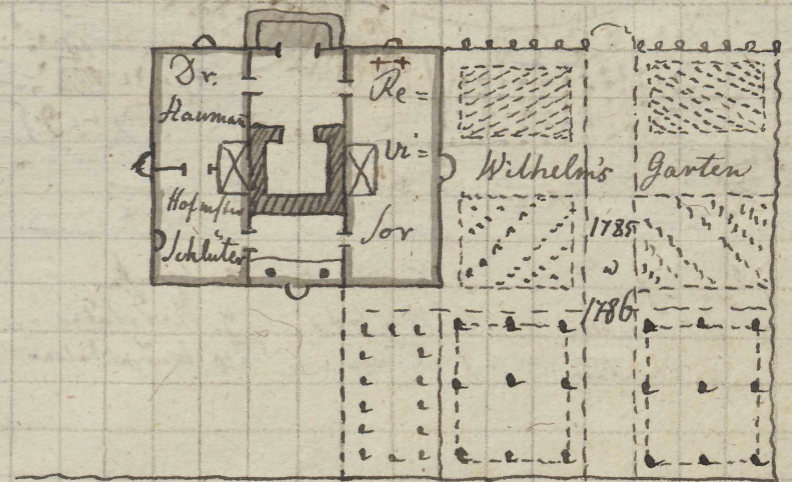 Dr.
Hauman
Hofmstr
Schlüter
Re=
vi=
sor
Wilhelm's Garten
1785
1786